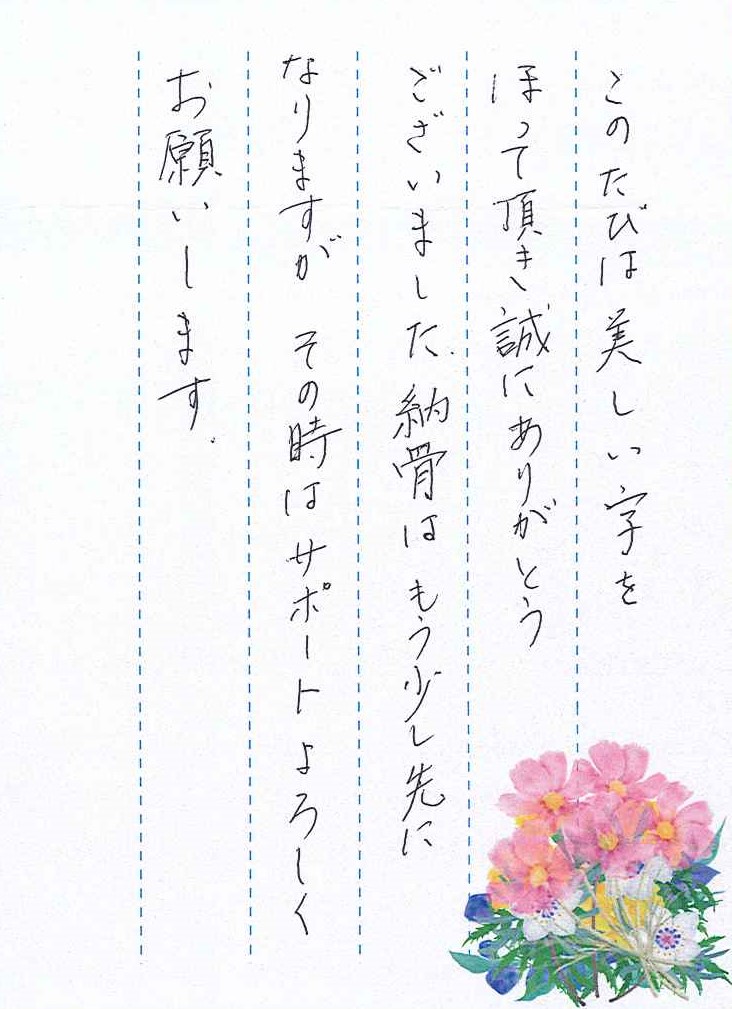 このたびは美しい字を
ほって頂き誠にありがとう
ございました。納骨はもう少し先に
なりますが その時はサポートよろしく
お願いします。